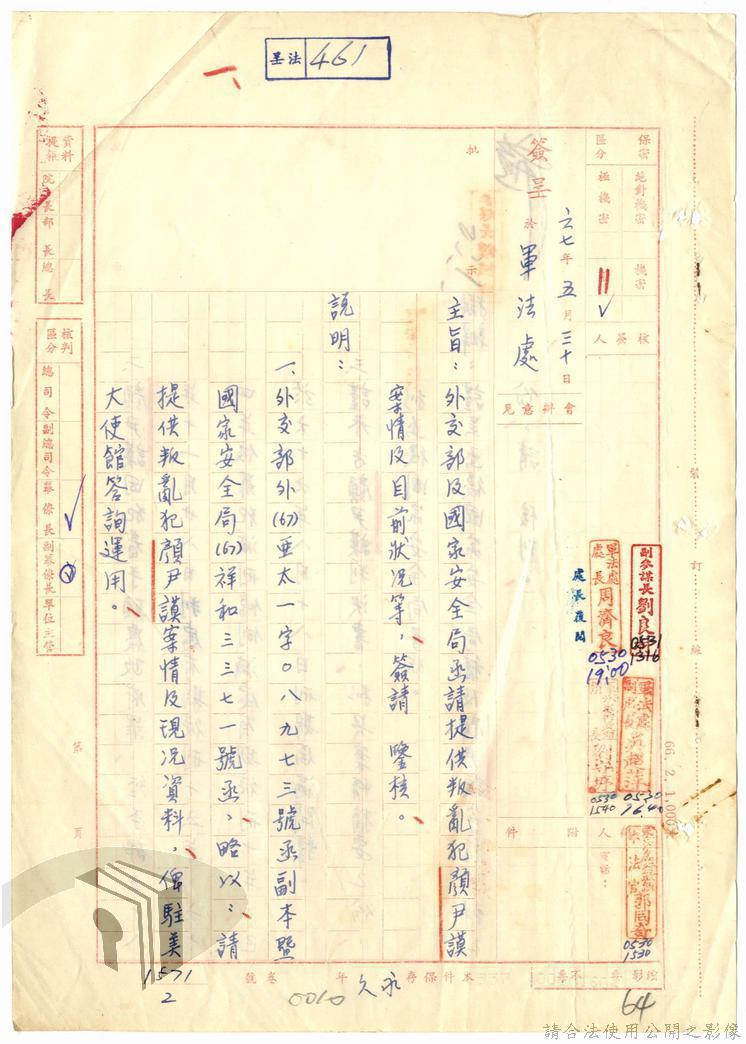 呈法 461
一、
保密區分
絶對機密
極機密
機密
簽呈
六七年五月三十日
於軍法處
核簽人
會辦意見
批示
主旨：外交部及國家安全局函請提供叛亂犯顏尹謨
案情及目前狀況等，簽請 鑒核。
說明：
一、外交部外(67)亜太一字0八九七三號函副本暨
國家安全局(67)祥和三三七一號函，略以：請
提供叛亂犯顏尹謨案情及現况資料，俾駐美
大使館答詢運用。
副參謀長劉良
0531
1316
軍法處處長周濟良
0530
19:00
處長夜閱
0530
16:40
0530
1540
0530
1530
附件
人
電話：
資料提報
院長
部長
總長
核判區分
總司令
副總司令
參謀長
副參謀長
單位主管
第 頁
裝訂線
66. 2. 1,000
本件保存永久年
卷號 0010
1571
2
64
請合法使用公開之影像